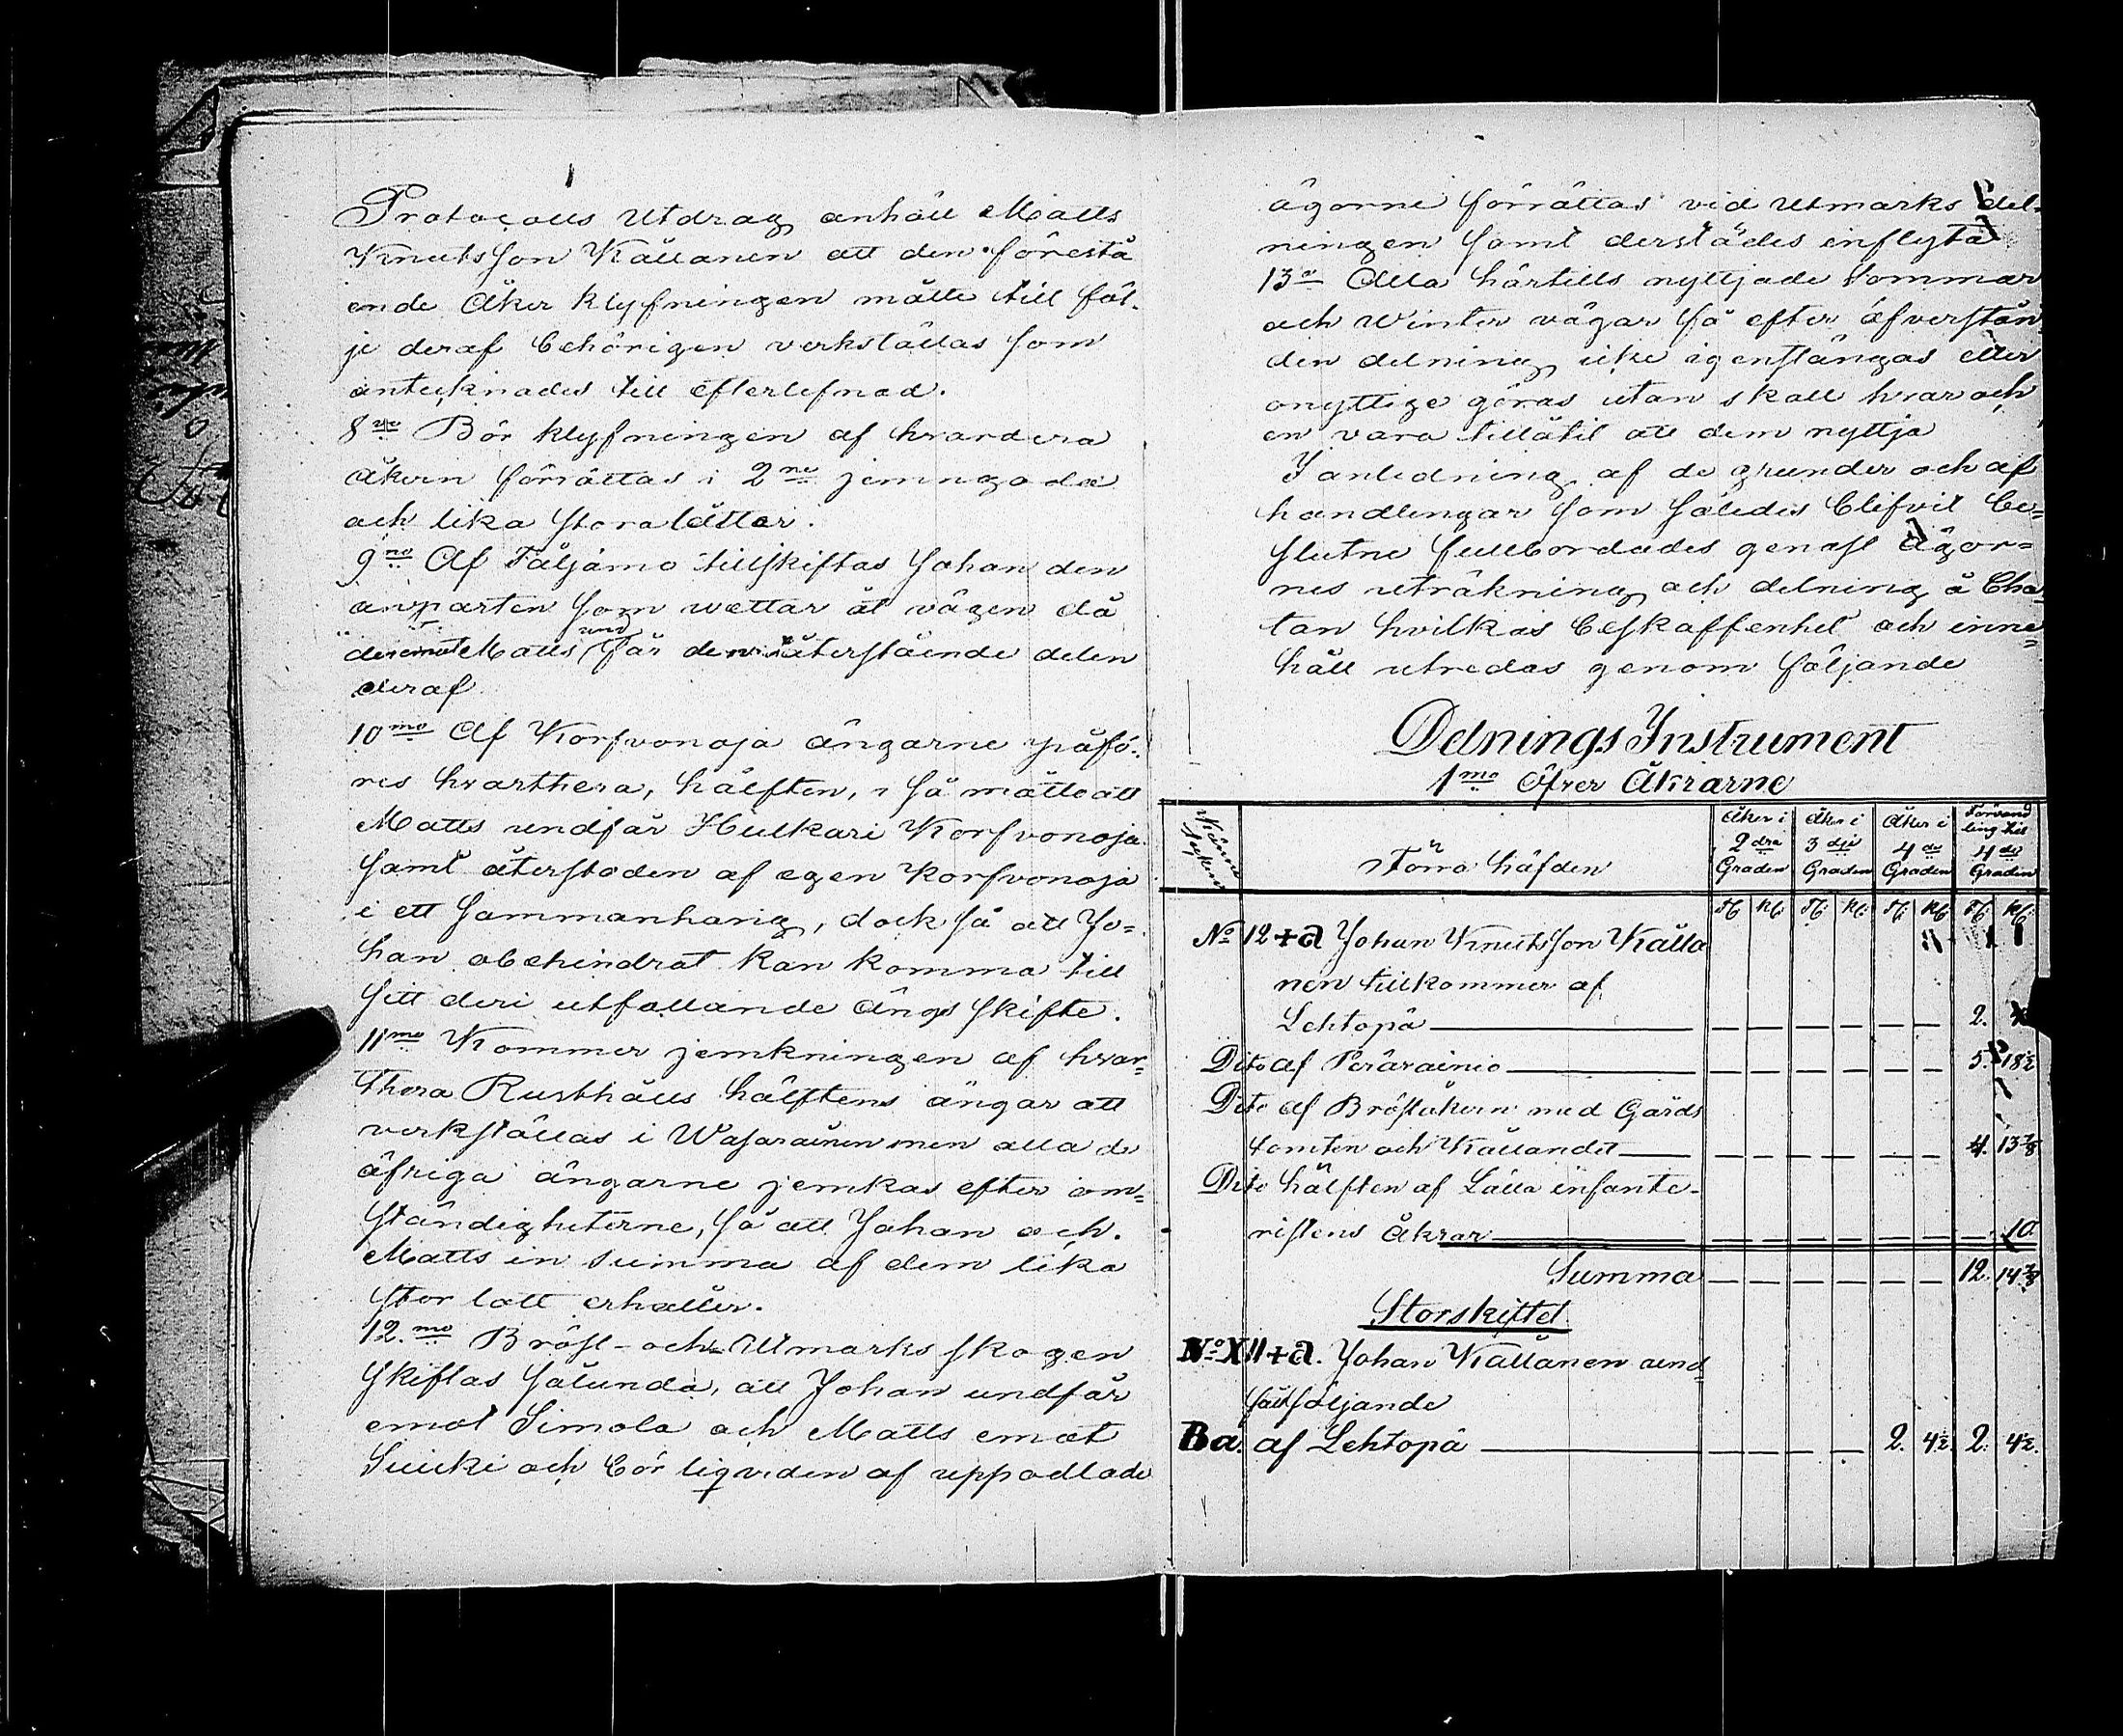 Protocolls Utdrag anhöll Matts
Knutsson Källanen att den förestå
ende Åker klyfningen måtte till föl-
je deraf behörigen verkställas som
antecknades till efterlefnad.
8vo Bör klyfningen af hvardera
åkern förrättas i 2ne jemngoda
och lika stora låttar.
9no Af Täljämo tillskiftas Johan den
anparten som wettar åt vägen då
deremot Matts und får den återstående delen
deraf
10mo Af Korfvonoja ängarne påfö-
res hvarthera, hälften, i så måtto att
Matts undfår Hulkari Korfvonoja
samt återstoden af egen Korfvonoja
i ett sammanhang, dock så att Jo=
han obehindrat kan komma till
sitt deri utfallande ängs skifte.
11mo Kommer jemkningen af hvar=
thera Rusthålls hälftens ängar att
verkställas i Wasarainen men alla de
öfriga ängarne jemkas efter om=
ständigheterne, så att Johan och
Matts in summa af dem lika
stor lott erhåller.
12.mo Bröst- och Utmarks skogen
skiftas sålunda, att Johan undfår
emot Simola och Matts emot
Suuki och bör liqviden af uppodlade
ägorne förrättas vid Utmarks del-
ningen samt derstädes inflyta
13o Alla härtills nyttjade Sommar
och Winter vägar få efter öfverstån
den delning icke igenstängas eller
onyttige göras utan skall hvar och
en vara tillåtit att dem nyttja
I anledning af de grunder och af
handlingar som således blifvit be=
slutne fullbordades genast ägor=
nes uträkning och delning å Cha
tan hvilkas beskaffenhet och inne=
håll utredas genom följande
Delnings Instrument
1mo Öfver Åkrarne
Förra häfden
Åker i 2dra Graden
Åker i 3dje Graden
Åker i 4de Graden
Förvand ling till 4de Graden
No 12 + a Johan Knutsson Källa
nen tillkommer af
Lehtopä — 2.
Dito af Perärainio — 5. 18½
Dito af Bröståkern med Gårds
tomten och Källandet — 4. 13⅞
Dito hälften af Lälla infante-
ristens åkrar — 10.
Summa — 12. 14⅞
Storskiftet
No XII + a. Johan Källanen und
fått följande
Ba. af Lehtopä — 2. 4½. 2. 4½.